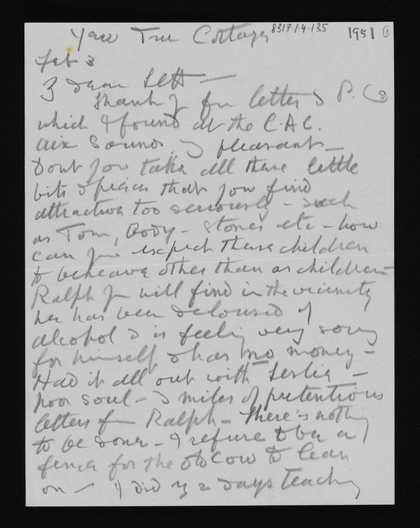 Yew Tree Cottage 8317/1/4/135 1951
Feb 3
My dear Sett —
Thank you for letter & P.C.s
which I found at the C.A.C.
Aix sounds pleasant —
Dont you take all these little
bits & pieces that you find
attractive too seriously — such
as Tom, Body — Stones etc — how
can you expect these children
to behave other than as children —
Ralph you will find in the vicinity
he has been of
alcohol & is feeling very sorry
for himself & has no money —
Had it all out with Leslie —
poor soul — & miles of pretentious
letters from Ralph — There's nothing
to be done — I refuse to be a
fence for the old cow to lean
on — I did my 2 days teaching